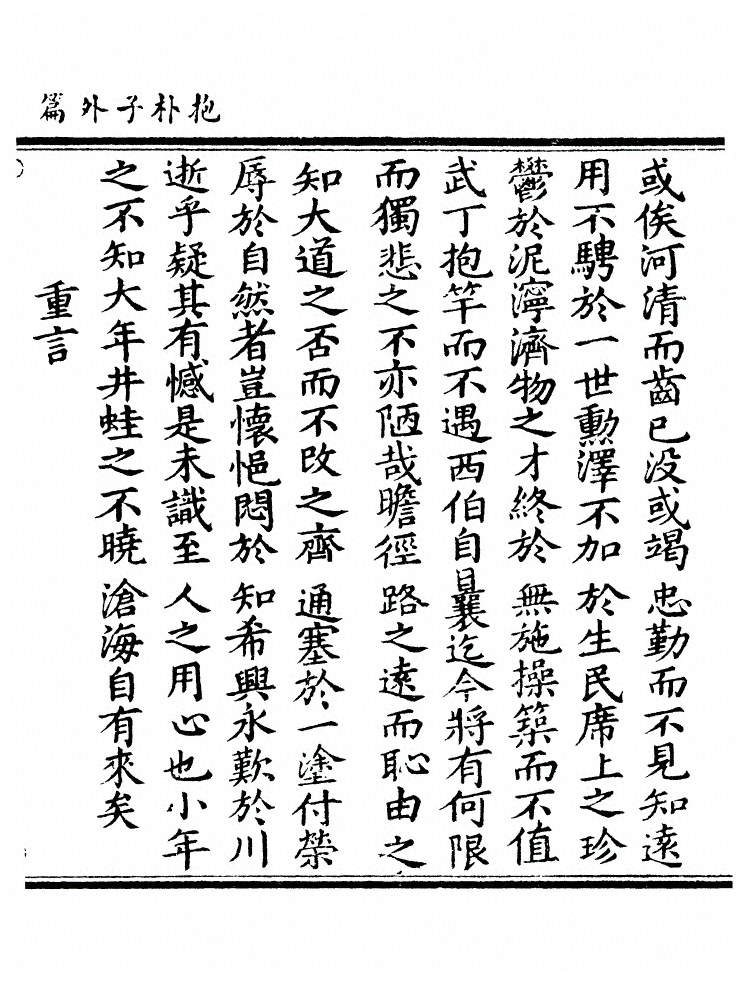 抱朴子外篇
或俟河清而齒已没或竭忠勤而不見知遠
用不騁於一世勲澤不加於生民席上之珍
鬱於泥濘濟物之才終於無施操築而不值
武丁抱竿而不遇西伯自曩迄今將有何限
而獨悲之不亦陋哉瞻徑路之遠而恥由之
知大道之否而不改之齊通塞於一塗付榮
辱於自然者豈懷悒悶於知希興永歎於川
逝乎疑其有憾是未識至人之用心也小年
之不知大年井蛙之不曉滄海自有來矣
重言